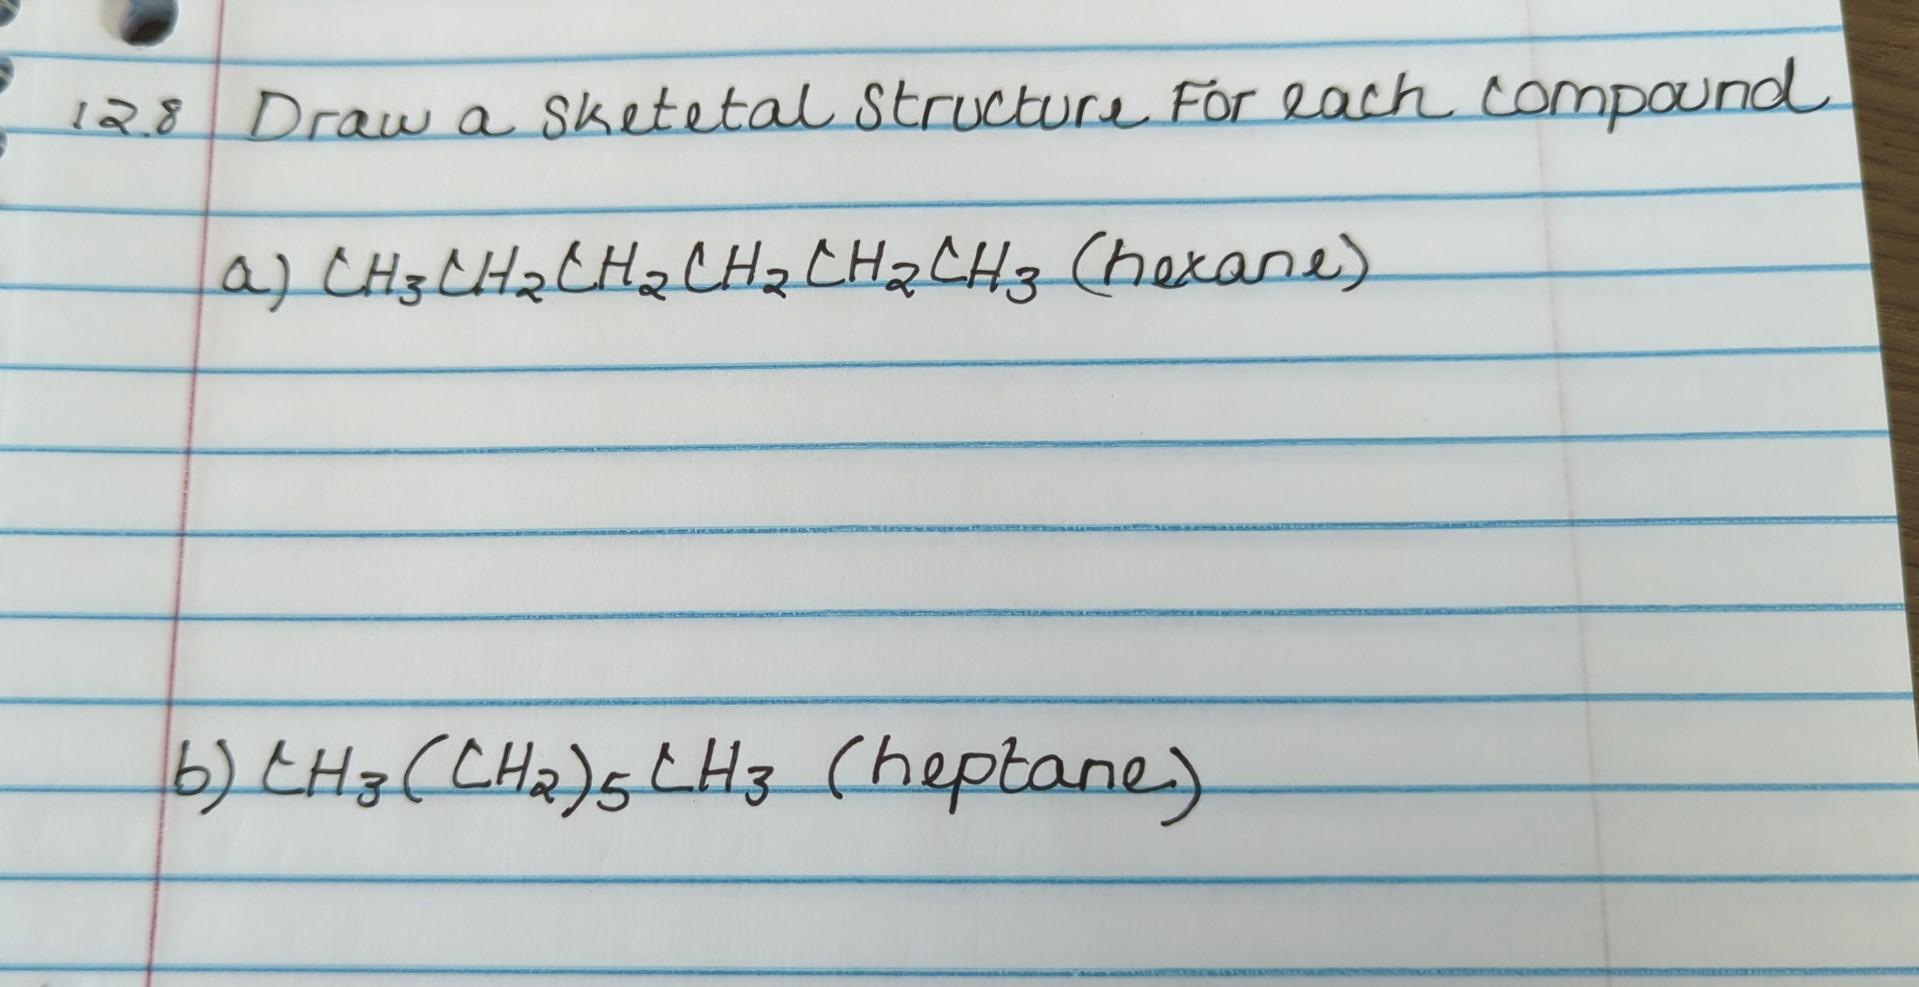 12.8 Draw a sketetal structure For each compound
a) CH3CH2CH2CH2CH2CH3 (hexane)
b) CH3(CH2)5CH3 (heptane)